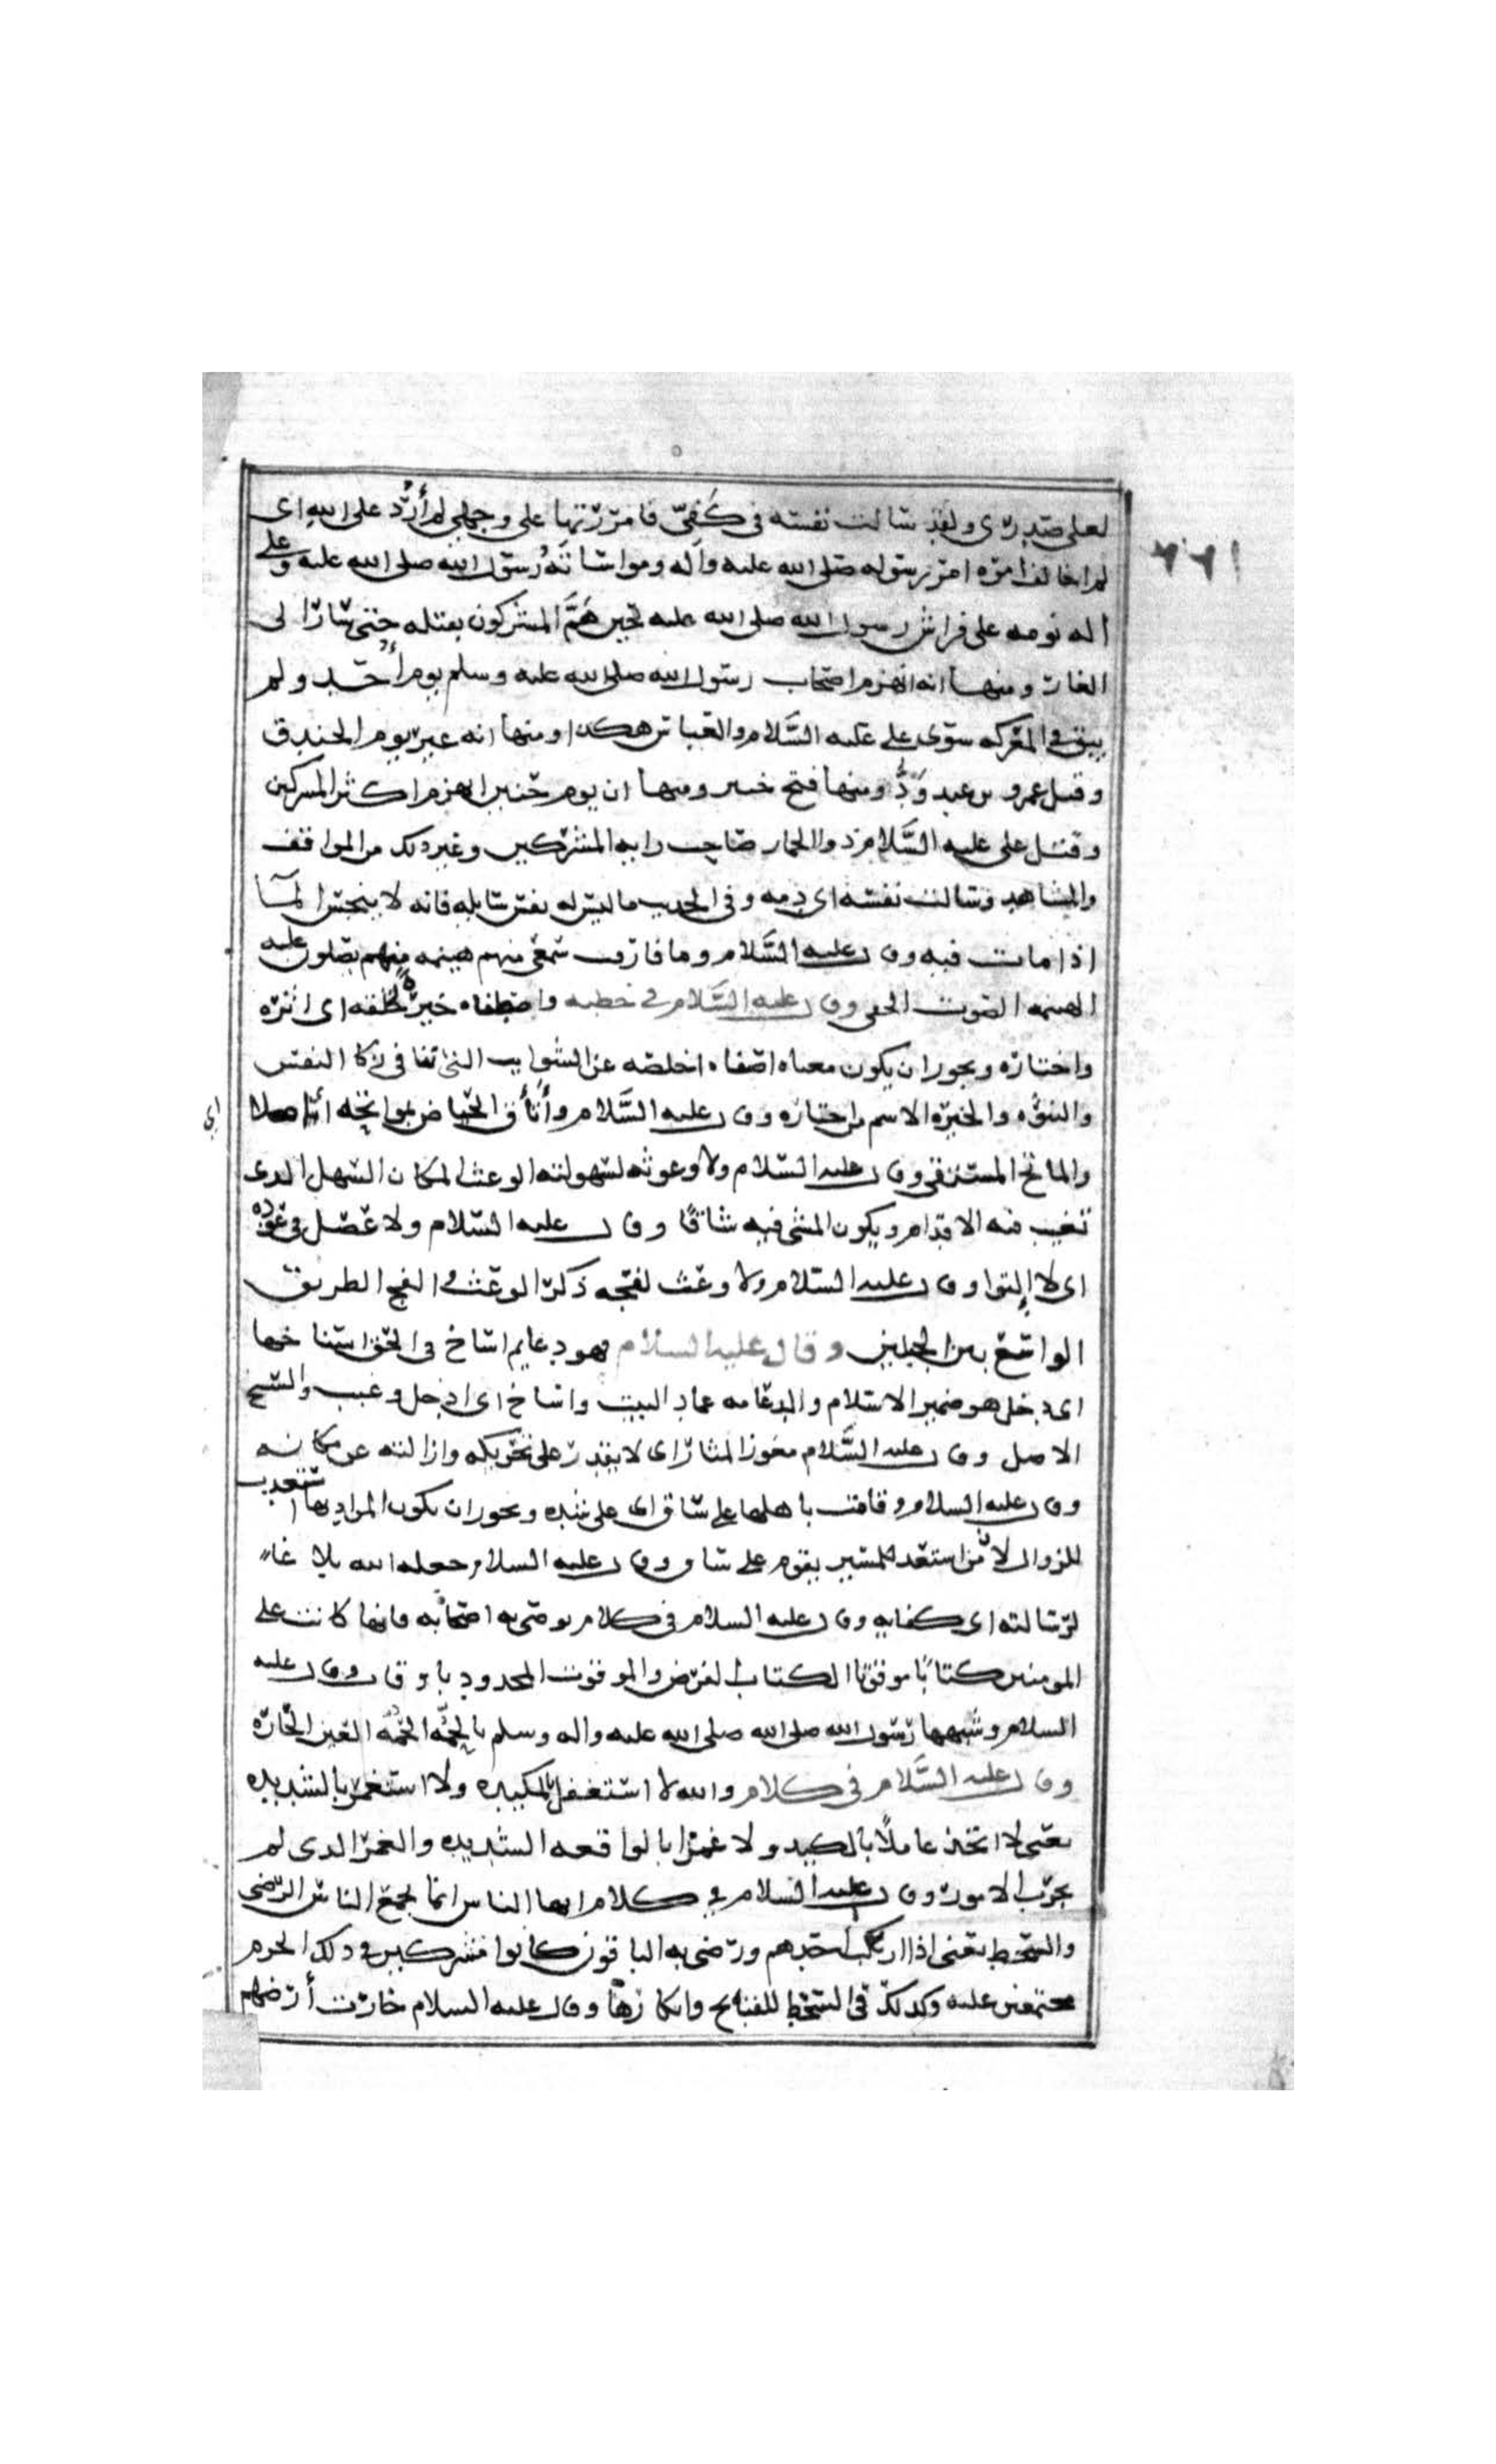 لعلى صدرى ولقد سالت نفسه فى كفى فامررتها على وجهى لم أرُد على الله اى
لم اخالف امره امر رسوله صلى الله عليه وآله ومواساته رسول الله صلى الله عليه وعلى
اله نومه على فراش رسول الله صلى الله عليه حين هَمَّ المشركون بقتله حتى سارا لى
الغار ومنها انه انهزم اصحاب رسول الله صلى الله عليه وسلم يوم أحد ولم
يبق فى المعركه سوى على عليه السَّلام والعباس هكذا ومنها انه عبر يوم الخندق
وقتل عمرو بن عبد وَدٍّ ومنها فتح خيبر ومنها ان يوم حنين انهزم اكثر المشركين
وقتل على عليه السَّلام ذو الخمار صاحب رايه المشركين وغير ذلك من المواقف
والمشاهد وسالت نفسه اى دمه وفى الحديث ما ليس له نفس سايله فانه لا ينجس المآ
اذا مات فيه وقال عليه السَّلام وما فارقت سمعى منهم هينمه منهم يصلون عليه
الهينمه الصوت الخفى وقال عليه السَّلام فى خطبه واصطفاه خيرة خلقه اى اثره
واختاره ويجوز ان يكون معناه اصفاه اخلصه عن الشوايب التى تنافى زكا النفس
والنبوّه والخيره الاسم من اختاره وقال عليه السَّلام وأتأق الحياض بمواتحه اى ملا
اى
والماتح المستنقى وقال عليه السلام ولا وعوثه لسهولته الوعث المكان السهل الدى
تغيب فيه الاقدام ويكون المشى فيه شاقًا وقال عليه السلام ولا عصل فى عوده
اى لا إلتوا وقال عليه السلام ولا وعث لفجه ذكر الوعث و الفج الطريق
الواسع بين الجبلين وقال عليه السلام فهو دعايم اساخ فى الحق اسناخها
اى دخل هو ضمير الاسلام والدعامه عماد البيت واساخ اى ادخل وغيب والسنخ
الاصل وقال عليه السَّلام معوز المثار اى لا يقدر على تحريكه وازالته عن مكانه
وقال عليه السلام وقامت باهلها على ساق اى على شده ويجوز ان يكون المراد بها تستعد
للزوال لأن من استعد للمسير يقوم على ساق وقال عليه السلام جعله الله بلاغا
لرسالته اى كفايه وقال عليه السلام فى كلام يوصى به اصحابه فانها كانت على
المومنين كتابًا موقوتا الكتاب الفرض والموقوت المحدود باوقات وقال عليه
السلام وشبهها رسول الله صلى الله صلى الله عليه واله وسلم بالحمَّه الحمَّه العين الحاره
وقال عليه السَّلام فى كلام والله لا استغفل بالمكيده ولا استغمز بالشديده
يعنى لا اتخذ غافلًا بالكيد ولا غمرا بالواقعه الشديده والغمر الدى لم
يجرّب الامور وقال عليه السلام فى كلام ايها الناس انما يجمع الناس الرّضى
والسخط يعنى اذا ارتكب احدهم ورضى به الباقون كانوا مشركين فى ذلك الجرم
مجتمعين عليه وكذلك فى السخط للقبايح وانكارها وقال عليه السلام خارت أرضهم